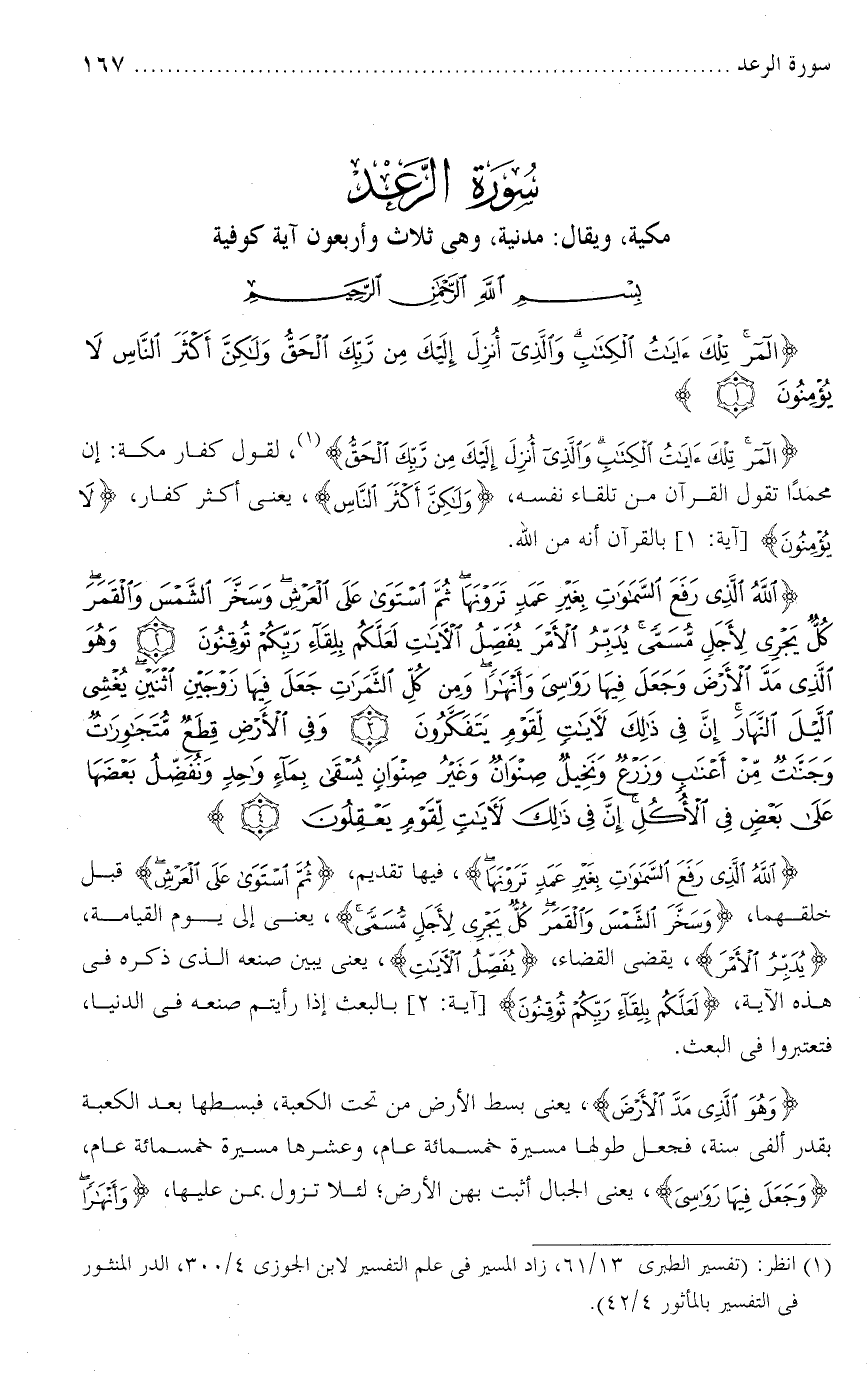 سورة الرعد ........................................................................ ١٦٧
سُورَةُ الرَّعْدِ
مكية، ويقال: مدنية، وهى ثلاث وأربعون آية كوفية
بِسْمِ ٱللَّهِ ٱلرَّحْمَٰنِ ٱلرَّحِيمِ
﴿الٓمٓرۚ تِلْكَ ءَايَٰتُ ٱلْكِتَٰبِۗ وَٱلَّذِىٓ أُنزِلَ إِلَيْكَ مِن رَّبِّكَ ٱلْحَقُّ وَلَٰكِنَّ أَكْثَرَ ٱلنَّاسِ لَا
يُؤْمِنُونَ ١ ﴾
﴿الٓمٓرۚ تِلْكَ ءَايَٰتُ ٱلْكِتَٰبِۗ وَٱلَّذِىٓ أُنزِلَ إِلَيْكَ مِن رَّبِّكَ ٱلْحَقُّ﴾(١)، لقول كفار مكة: إن
محمدًا تقول القرآن من تلقاء نفسه، ﴿وَلَٰكِنَّ أَكْثَرَ ٱلنَّاسِ﴾، يعنى أكثر كفار، ﴿لَا
يُؤْمِنُونَ﴾ [آية: ١] بالقرآن أنه من الله.
﴿ٱللَّهُ ٱلَّذِى رَفَعَ ٱلسَّمَٰوَٰتِ بِغَيْرِ عَمَدٍ تَرَوْنَهَاۖ ثُمَّ ٱسْتَوَىٰ عَلَى ٱلْعَرْشِۖ وَسَخَّرَ ٱلشَّمْسَ وَٱلْقَمَرَۖ
كُلٌّ يَجْرِى لِأَجَلٍ مُّسَمًّىۚ يُدَبِّرُ ٱلْأَمْرَ يُفَصِّلُ ٱلْأٓيَٰتِ لَعَلَّكُم بِلِقَآءِ رَبِّكُمْ تُوقِنُونَ ٢ وَهُوَ
ٱلَّذِى مَدَّ ٱلْأَرْضَ وَجَعَلَ فِيهَا رَوَٰسِىَ وَأَنْهَٰرًاۖ وَمِن كُلِّ ٱلثَّمَرَٰتِ جَعَلَ فِيهَا زَوْجَيْنِ ٱثْنَيْنِۖ يُغْشِى
ٱلَّيْلَ ٱلنَّهَارَۚ إِنَّ فِى ذَٰلِكَ لَأٓيَٰتٍ لِّقَوْمٍ يَتَفَكَّرُونَ ٣ وَفِى ٱلْأَرْضِ قِطَعٌ مُّتَجَٰوِرَٰتٌ
وَجَنَّٰتٌ مِّنْ أَعْنَٰبٍ وَزَرْعٌ وَنَخِيلٌ صِنْوَانٌ وَغَيْرُ صِنْوَانٍ يُسْقَىٰ بِمَآءٍ وَٰحِدٍ وَنُفَضِّلُ بَعْضَهَا
عَلَىٰ بَعْضٍ فِى ٱلْأُكُلِۚ إِنَّ فِى ذَٰلِكَ لَأٓيَٰتٍ لِّقَوْمٍ يَعْقِلُونَ ٤ ﴾
﴿ٱللَّهُ ٱلَّذِى رَفَعَ ٱلسَّمَٰوَٰتِ بِغَيْرِ عَمَدٍ تَرَوْنَهَاۖ﴾، فيها تقديم، ﴿ثُمَّ ٱسْتَوَىٰ عَلَى ٱلْعَرْشِۖ﴾ قبل
خلقهما، ﴿وَسَخَّرَ ٱلشَّمْسَ وَٱلْقَمَرَۖ كُلٌّ يَجْرِى لِأَجَلٍ مُّسَمًّىۚ﴾، يعنى إلى يوم القيامة،
﴿يُدَبِّرُ ٱلْأَمْرَ﴾، يقضى القضاء، ﴿يُفَصِّلُ ٱلْأٓيَٰتِ﴾، يعنى يبين صنعه الذى ذكره فى
هذه الآية، ﴿لَعَلَّكُم بِلِقَآءِ رَبِّكُمْ تُوقِنُونَ﴾ [آية: ٢] بالبعث إذا رأيتم صنعه فى الدنيا،
فتعتبروا فى البعث.
﴿وَهُوَ ٱلَّذِى مَدَّ ٱلْأَرْضَ﴾، يعنى بسط الأرض من تحت الكعبة، فبسطها بعد الكعبة
بقدر ألفى سنة، فجعل طولها مسيرة خمسمائة عام، وعشرها مسيرة خمسمائة عام،
﴿وَجَعَلَ فِيهَا رَوَٰسِىَ﴾، يعنى الجبال أثبت بهن الأرض؛ لئلا تزول بمن عليها، ﴿وَأَنْهَٰرًاۖ
(١) انظر: (تفسير الطبرى ٦١/١٣، زاد المسير فى علم التفسير لابن الجوزى ٣٠٠/٤، الدر المنثور
فى التفسير بالمأثور ٤٢/٤).